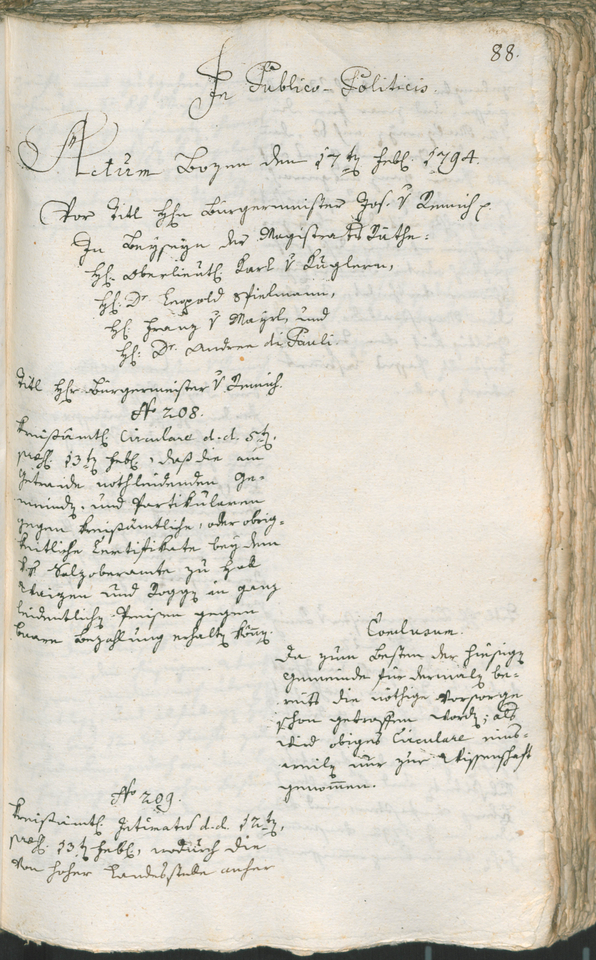 88.
In Publico-Politicis
Actum Bozen den 17t. Febl. 1794.
Vor Titl Hhn Bürgermeister Jos. v Remich p
In Beyseyn der Magistrats Räthe:
Hl. Oberlieuth Karl v Kuglern,
Hl. Dr. Leopold Spielmann,
Hl. Franz v Mayrl, und
Hl. Dr. Andree di Pauli
Titl Hhr Bürgermeister v Remich.
No 208.
Kreisämtl. Circulare d. d. 5t.
13t Febl., daß die am
Getraide nothleidenden Ge-
meindn, und Partikularen
gegen kreisämtliche, oder obrig-
keitliche Certifikate bey dem
Salzoberamte zu Hall
Waizen und Roggn in ganz
leidentlichn Preisen gegen
baare Bezahlung erhaltn könn.
Conclusum.
Da zum Besten der hiesign
Gemeinde für dermaln be-
reits die nöthige Vorsorge
schon getroffen wordn; als
wird obiges Circulare eins-
weiln nur zur Wissenschaft
genommen.
No 209.
Kreisämtl. Intimatum d. d. 12t,
13t Febl, wodurch die
von hoher Landesstelle anher